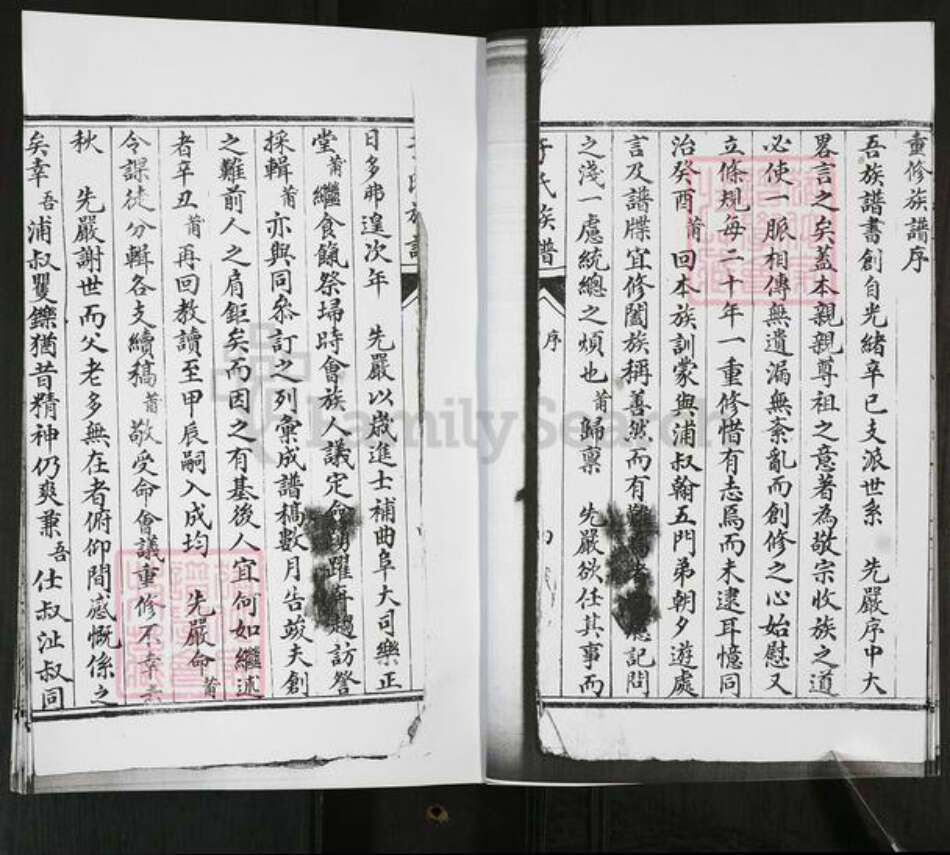 重修族譜序
吾族譜書創自光緒辛巳支派世系 先嚴序中大
畧言之矣蓋本親親尊祖之意著為敬宗收族之道
必使一脈相傳無遺漏無紊亂而創修之心始慰又
立條規每二十年一重修惜有志焉而未逮耳憶同
治癸酉莆回本族訓蒙與浦叔翰五門弟朝夕遊處
言及譜牒宜修闔族稱善然而有難記問
之淺一慮統總之煩也莆歸稟 先嚴欲任其事而
于氏族譜
序
日多弗遑次年 先嚴以歲進士補曲阜大司樂正
堂莆繼食餼祭埽時會族人議定命躍趨訪詧
採輯莆亦與同叅訂之列彙成譜稿數月告竣夫創
之難前人之肩鉅矣而因之有基後人宜何如繼述
者辛丑莆再回教讀至甲辰嗣入成均 先嚴命莆
令課徒分輯各支續稿莆敬受命會議重修不幸素
秋 先嚴謝世而父老多無在者俯仰間感慨係之
矣幸吾浦叔矍鑠猶昔精神仍爽兼吾仕叔沚叔同
FamilySearch